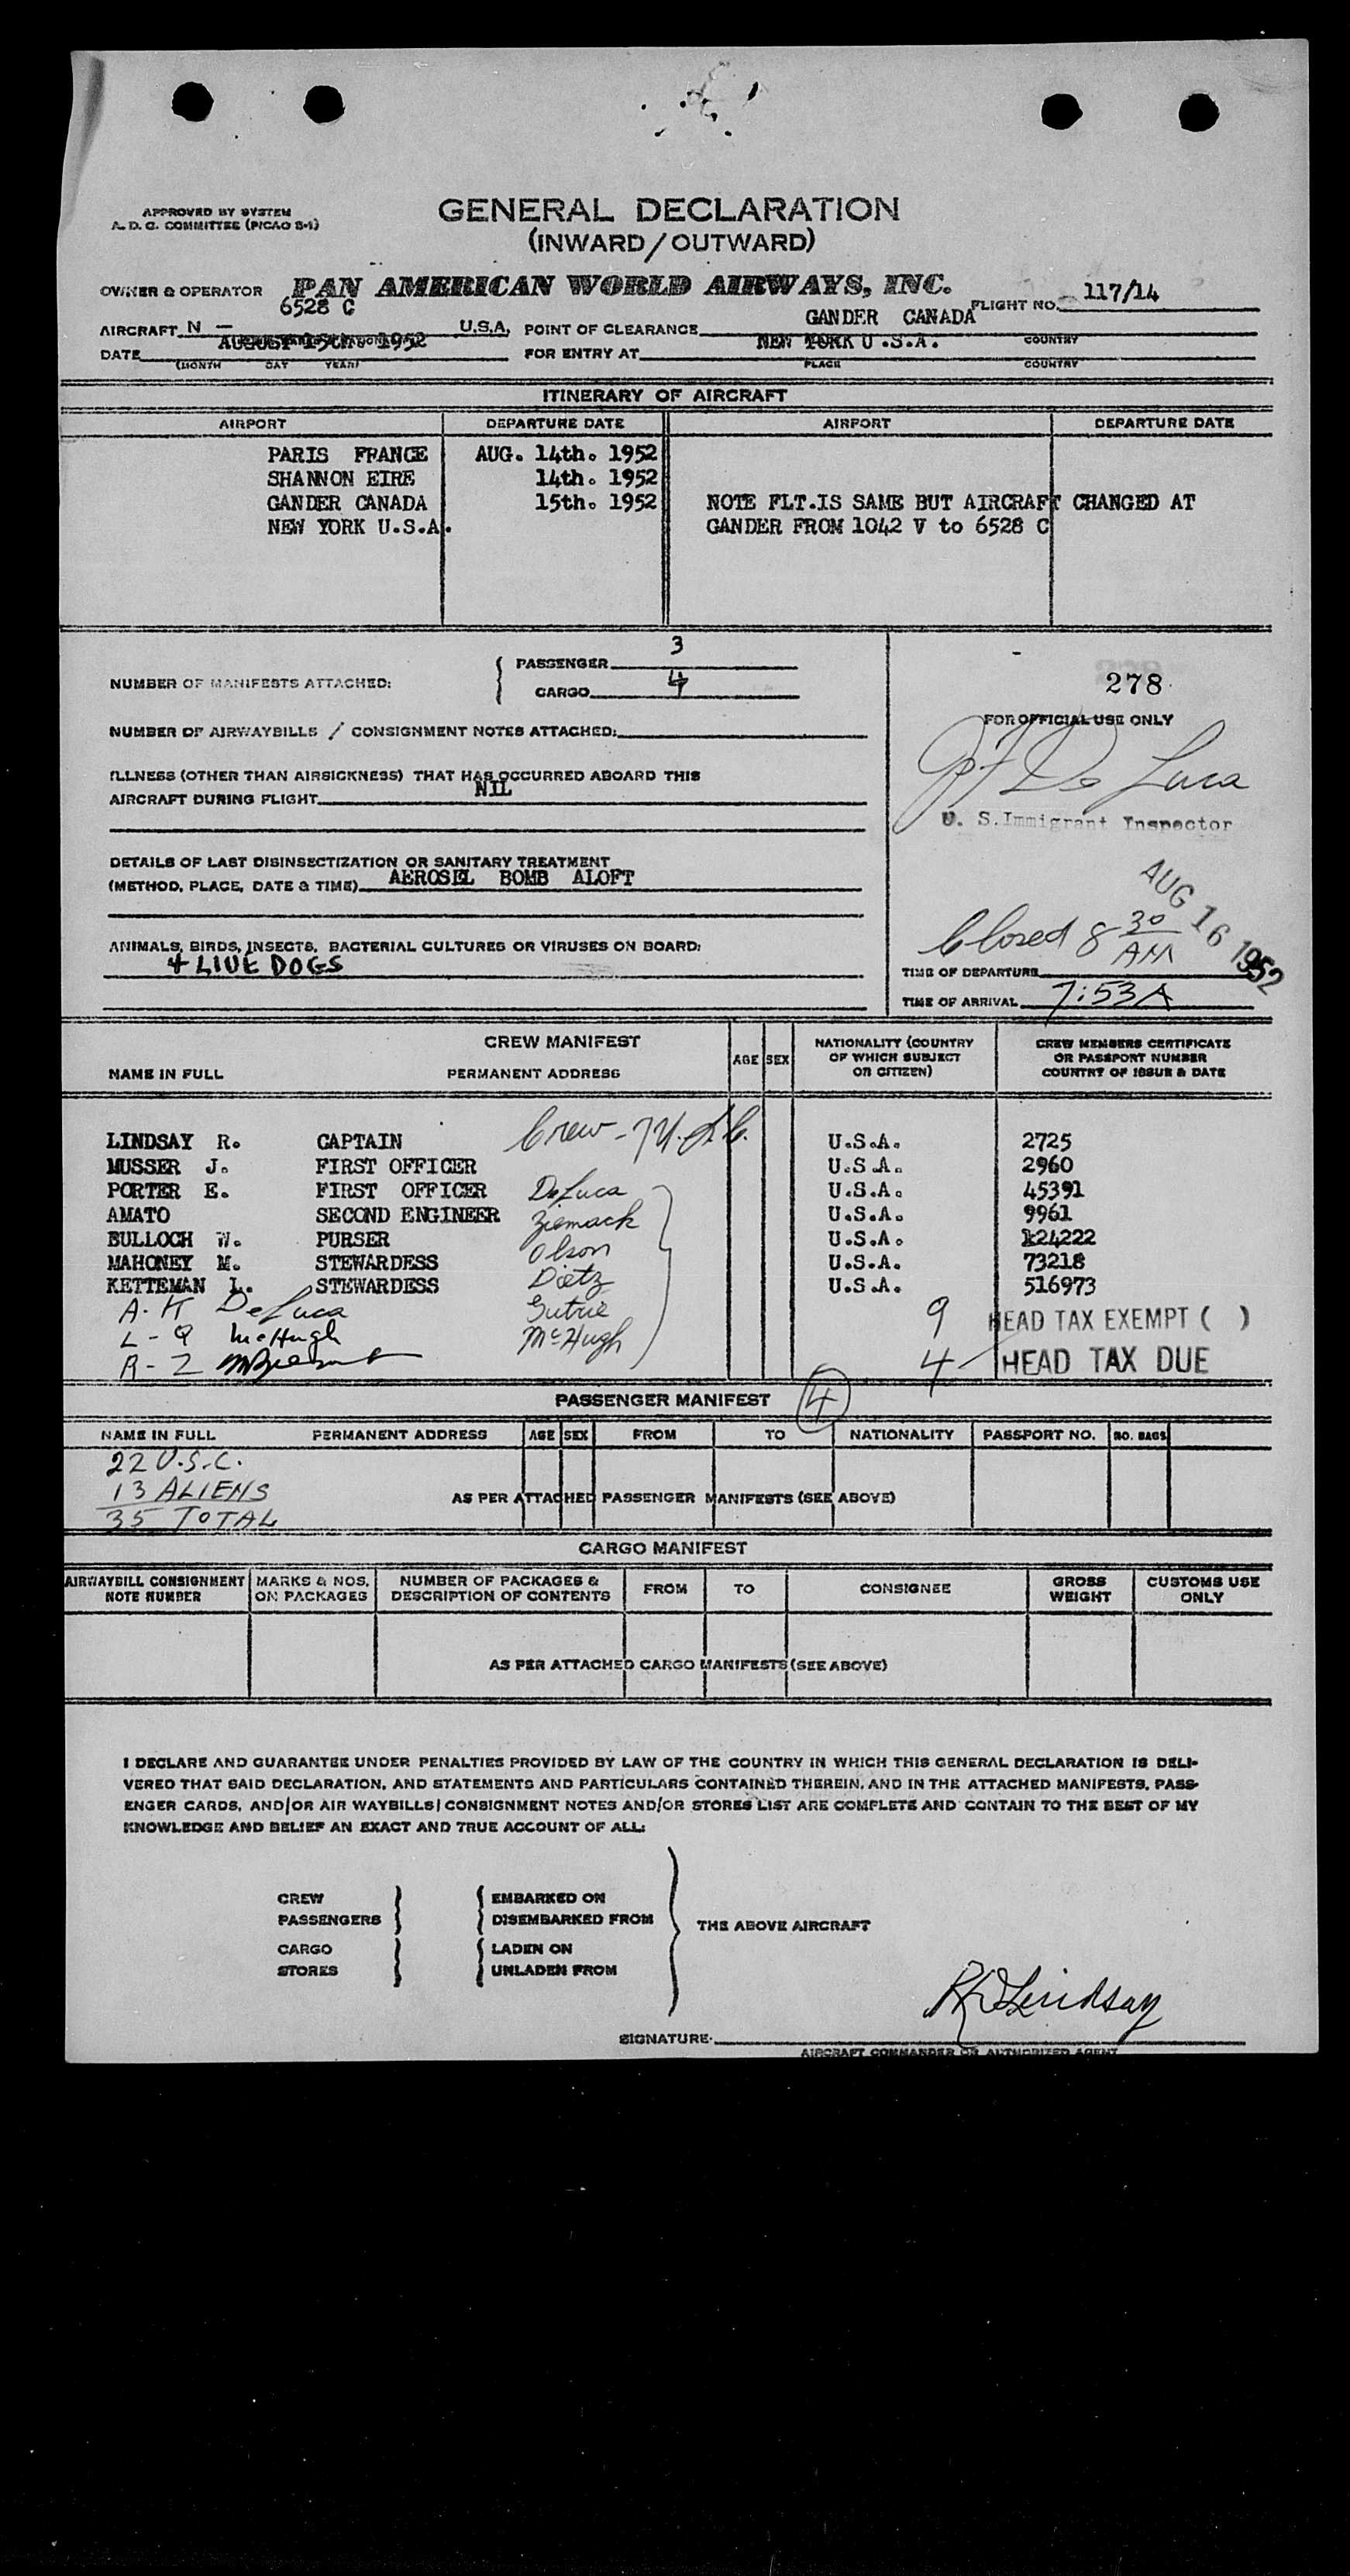 APPROVED BY SYSTEM
A. D. C. COMMITTEE (PICAO S-1)
GENERAL DECLARATION
(INWARD/OUTWARD)
OWNER & OPERATOR PAN AMERICAN WORLD AIRWAYS, INC.
FLIGHT NO. 117/14
6528 C
AIRCRAFT N - U.S.A. POINT OF CLEARANCE GANDER CANADA
COUNTRY
DATE AUGUST 15th. 1952 FOR ENTRY AT NEW YORK U.S.A.
(MONTH DAY YEAR) PLACE COUNTRY
ITINERARY OF AIRCRAFT
AIRPORT DEPARTURE DATE AIRPORT DEPARTURE DATE
PARIS FRANCE AUG. 14th. 1952
SHANNON EIRE 14th. 1952
GANDER CANADA 15th. 1952 NOTE FLT.IS SAME BUT AIRCRAFT CHANGED AT
NEW YORK U.S.A. GANDER FROM 1042 V to 6528 C
NUMBER OF MANIFESTS ATTACHED:
PASSENGER 3
CARGO 4
278
FOR OFFICIAL USE ONLY
NUMBER OF AIRWAYBILLS / CONSIGNMENT NOTES ATTACHED:
De Luca
U. S. Immigrant Inspector
ILLNESS (OTHER THAN AIRSICKNESS) THAT HAS OCCURRED ABOARD THIS
AIRCRAFT DURING FLIGHT NIL
DETAILS OF LAST DISINSECTIZATION OR SANITARY TREATMENT
(METHOD, PLACE, DATE & TIME) AEROSEL BOMB ALOFT
AUG 16 1952
Closed 8 30 AM
ANIMALS, BIRDS, INSECTS, BACTERIAL CULTURES OR VIRUSES ON BOARD:
4 LIVE DOGS
TIME OF DEPARTURE
TIME OF ARRIVAL 7:53A
CREW MANIFEST
NAME IN FULL PERMANENT ADDRESS AGE SEX NATIONALITY (COUNTRY OF WHICH SUBJECT OR CITIZEN) CREW MEMBERS CERTIFICATE OR PASSPORT NUMBER COUNTRY OF ISSUE & DATE
LINDSAY R. CAPTAIN Crew - 7 U.S.C. U.S.A. 2725
MUSSER J. FIRST OFFICER U.S.A. 2960
PORTER E. FIRST OFFICER DeLuca U.S.A. 45391
AMATO SECOND ENGINEER Ziemack U.S.A. 9961
BULLOCH W. PURSER Olson U.S.A. 124222
MAHONEY M. STEWARDESS Dietz U.S.A. 73218
KETTEMAN L. STEWARDESS U.S.A. 516973
A-K DeLuca Gutrie 9 HEAD TAX EXEMPT ( )
L-Q McHugh McHugh
R-Z 4 HEAD TAX DUE
PASSENGER MANIFEST 4
NAME IN FULL PERMANENT ADDRESS AGE SEX FROM TO NATIONALITY PASSPORT NO. NO. BAGS
22 U.S.C.
13 ALIENS
35 TOTAL
AS PER ATTACHED PASSENGER MANIFESTS (SEE ABOVE)
CARGO MANIFEST
AIRWAYBILL CONSIGNMENT NOTE NUMBER MARKS & NOS. ON PACKAGES NUMBER OF PACKAGES & DESCRIPTION OF CONTENTS FROM TO CONSIGNEE GROSS WEIGHT CUSTOMS USE ONLY
AS PER ATTACHED CARGO MANIFESTS (SEE ABOVE)
I DECLARE AND GUARANTEE UNDER PENALTIES PROVIDED BY LAW OF THE COUNTRY IN WHICH THIS GENERAL DECLARATION IS DELI-
VERED THAT SAID DECLARATION, AND STATEMENTS AND PARTICULARS CONTAINED THEREIN, AND IN THE ATTACHED MANIFESTS, PASS-
ENGER CARDS, AND/OR AIR WAYBILLS/CONSIGNMENT NOTES AND/OR STORES LIST ARE COMPLETE AND CONTAIN TO THE BEST OF MY
KNOWLEDGE AND BELIEF AN EXACT AND TRUE ACCOUNT OF ALL:
CREW EMBARKED ON
PASSENGERS DISEMBARKED FROM
THE ABOVE AIRCRAFT
CARGO LADEN ON
STORES UNLADEN FROM
SIGNATURE. RD Lindsay
AIRCRAFT COMMANDER OR AUTHORIZED AGENT